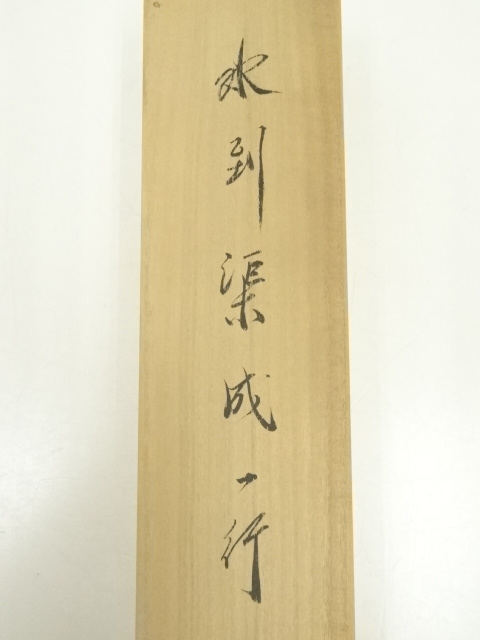 水到渠成一行